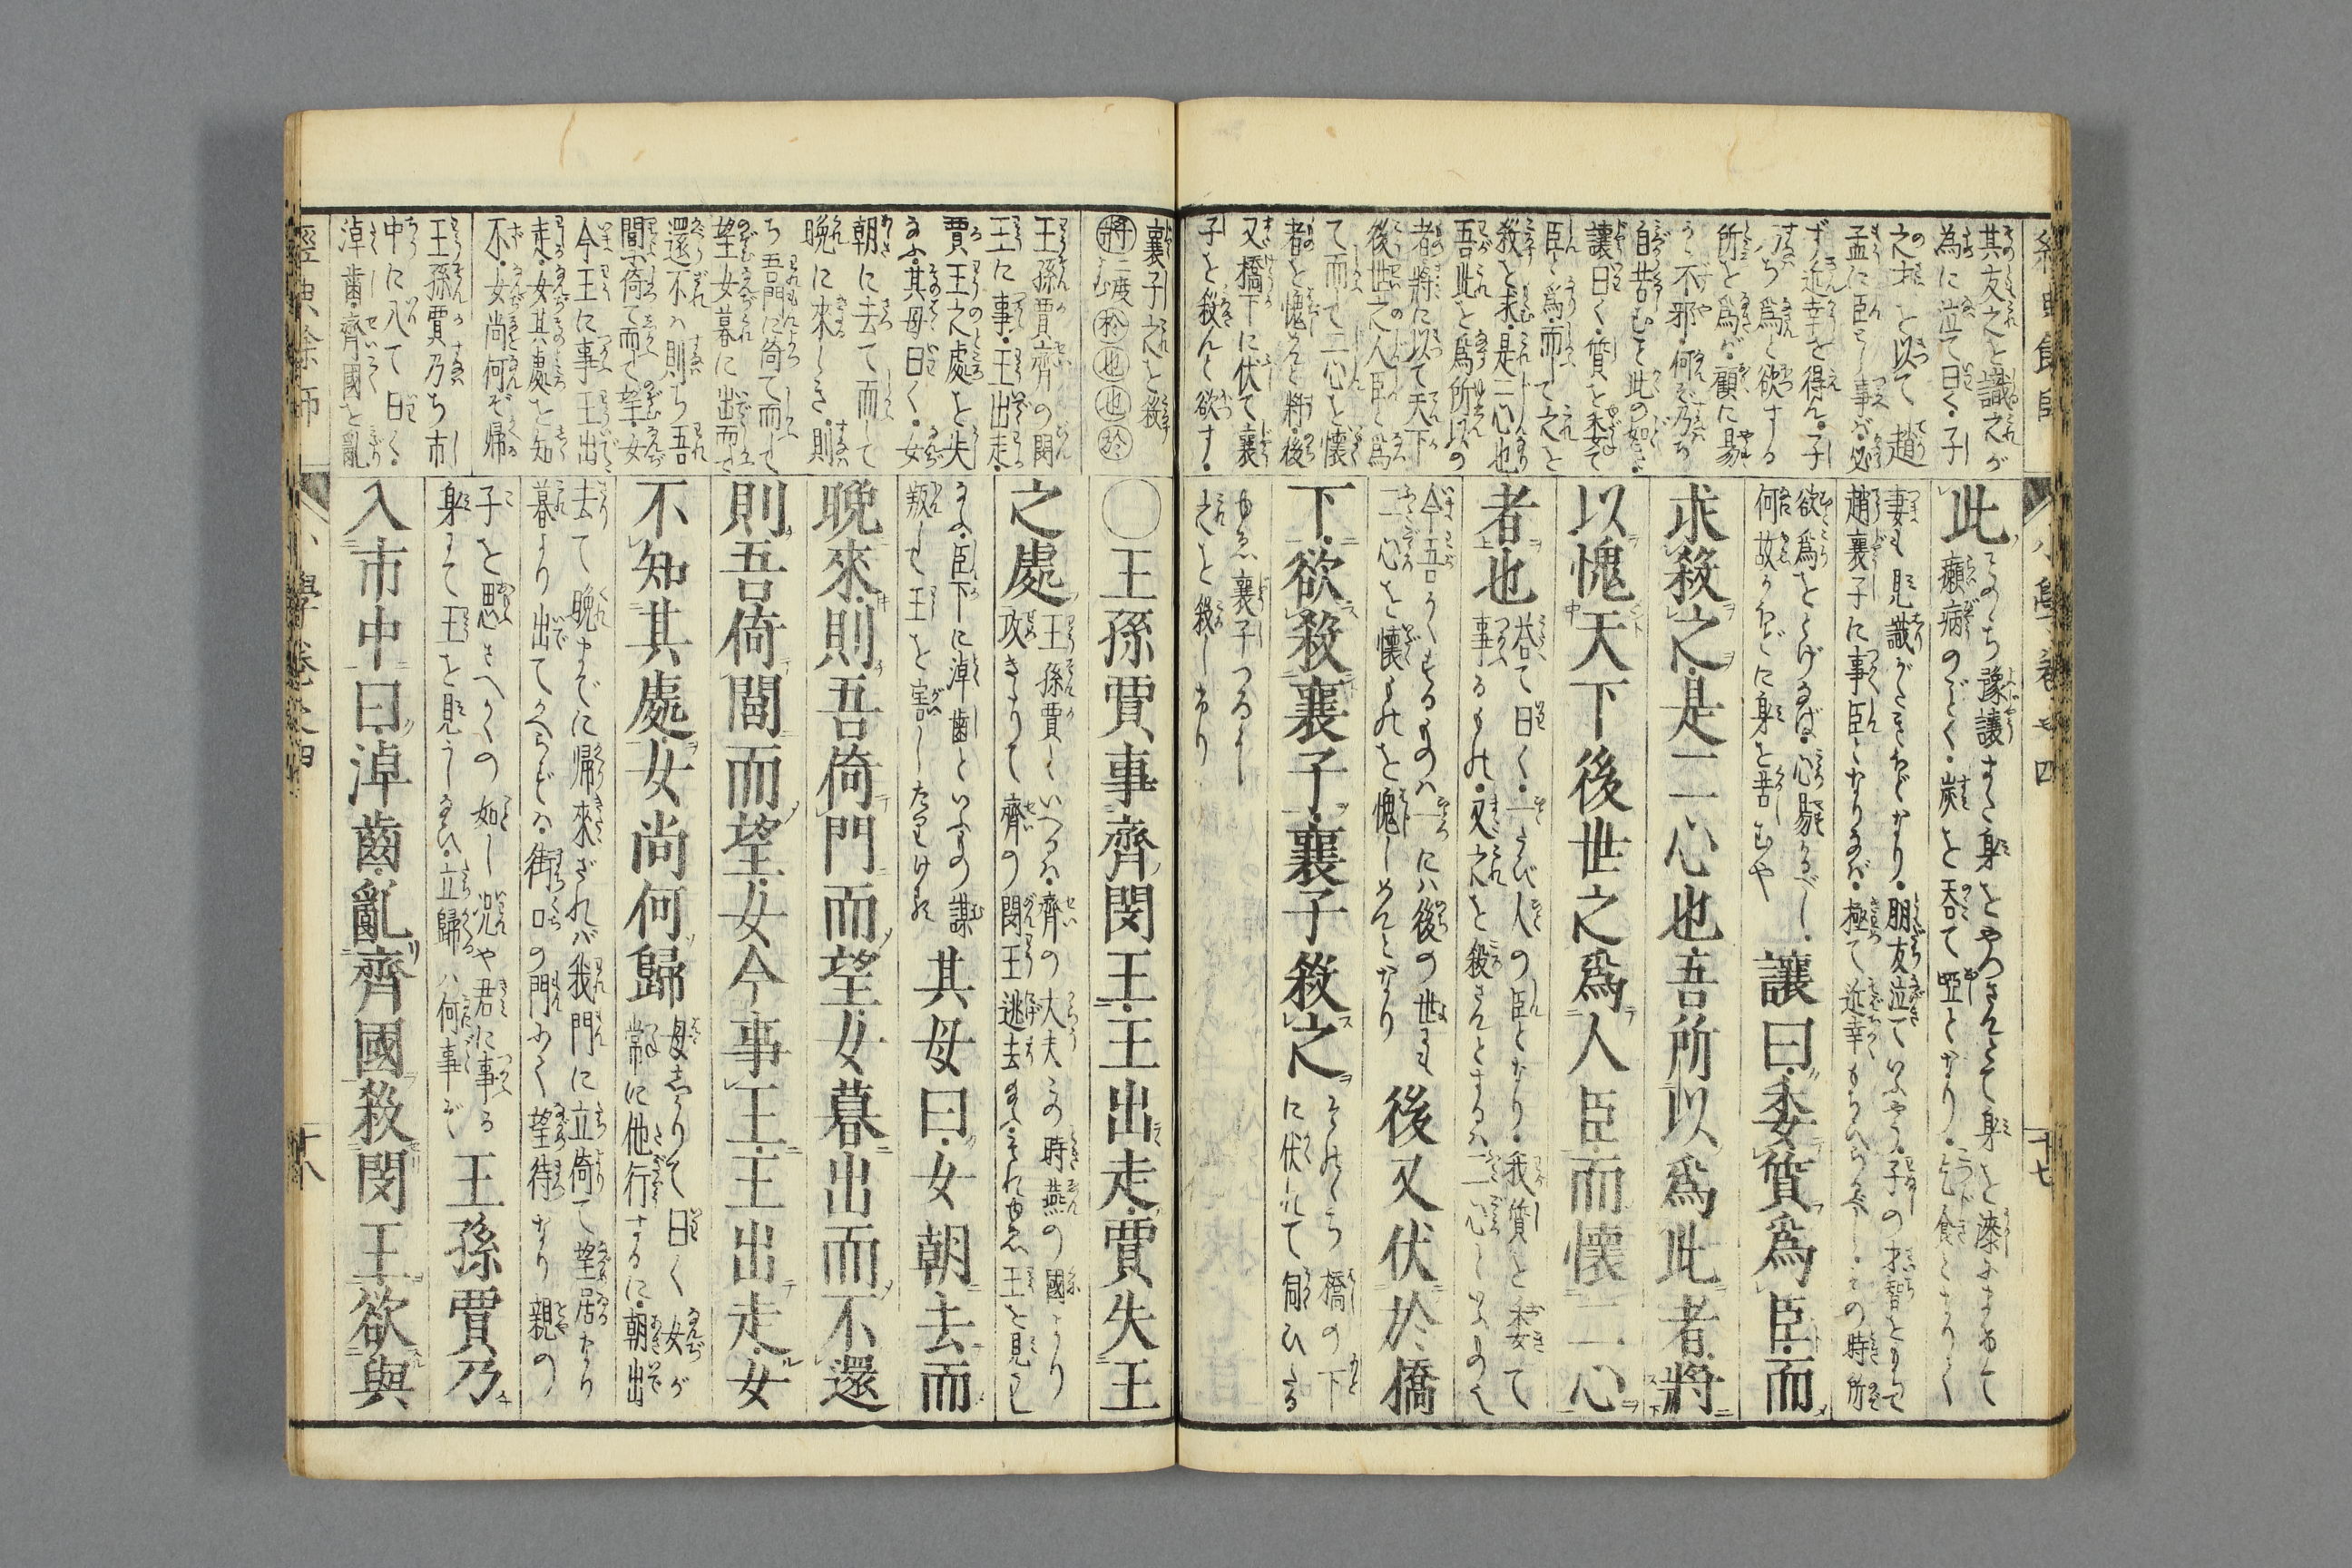 經典餘師
其友之を識之が
為に泣て曰く子
之才を以て趙
孟に臣とし事ば必
ず近幸を得ん子
乃ち為と欲する
所を為ば顧に易
からず不邪何ぞ乃ち
自苦むこと此の如き
讓曰く質を委て
臣と為而して之を
殺を求是二心也
吾此を爲所以の
者將に以て天下
後世之人臣と爲
て而して二心を懐
者を愧めんと將後
又橋下に伏て襄
子を殺んと欲す
小學卷之四
十七
此
そのゝち豫讓また身をやつさんとて身を漆にまぬて
癩病のごとく炭を吞て啞となり乞食となりしく
妻も見識がたきほどなり朋友泣ていふやう子の才智をもつて
趙襄子に事臣となりなば極て近幸もちひらるべしその時所
欲爲をとげなば心易かるべし
何故かほどに身を苦むや
讓曰委質爲臣而
求殺之是二心也吾所以爲此者將
以愧天下後世之爲人臣而懐二心
者也
答て曰く一たび人の臣となり我質を委て
事るもの又之を殺さんとするハ二心といふものなり
今吾かくするものハ一にハ後の世も
二心を懐ものを愧しめんとなり
後又伏於橋
下欲殺襄子襄子殺之
そのゝち橋の下
に伏れて伺ひたる
ゆゑ襄子つるに
之を殺しなり
襄子之を殺
將二度於也也於
王孫賈齊の閔
王に事王出走
賈王之處を失
なふ其母曰く女
朝に去て而して
晩に來しき則
ち吾門に倚て而して
望女暮に出而て
還不ハ則ち吾
閭に倚て而して望女
今王に事王出
走女其處を知
不女尚何ぞ帰
王孫賈乃ち市
中に入て曰く
淖齒齊國を亂
〇王孫賈事齊閔王王出走賈失王
之處
王孫賈といへるハ齊の大夫その時燕の國より
攻きたりて齊の閔王逃去なふそれゆゑ王を見うし
なふ臣下に淖齒といふもの謀
叛して王を害したりける
其母曰女朝去而
晩來則吾倚門而望女暮出而不還
則吾倚閭而望女今事王王出走女
不知其處女尚何歸
母志かりて曰く女が
常に他行するに朝出
去て晩までに帰來ざれバ我門に立倚て望居なり
暮より出てかへらざるハ街口の門おく望待なり親の
子を思さへかくの如し况や君に事る
身まて王を見うしなひ立歸ハ何事ぞ
王孫賈乃
入市中曰淖齒亂齊國殺閔王欲與
經典餘師
小學卷之四
十八